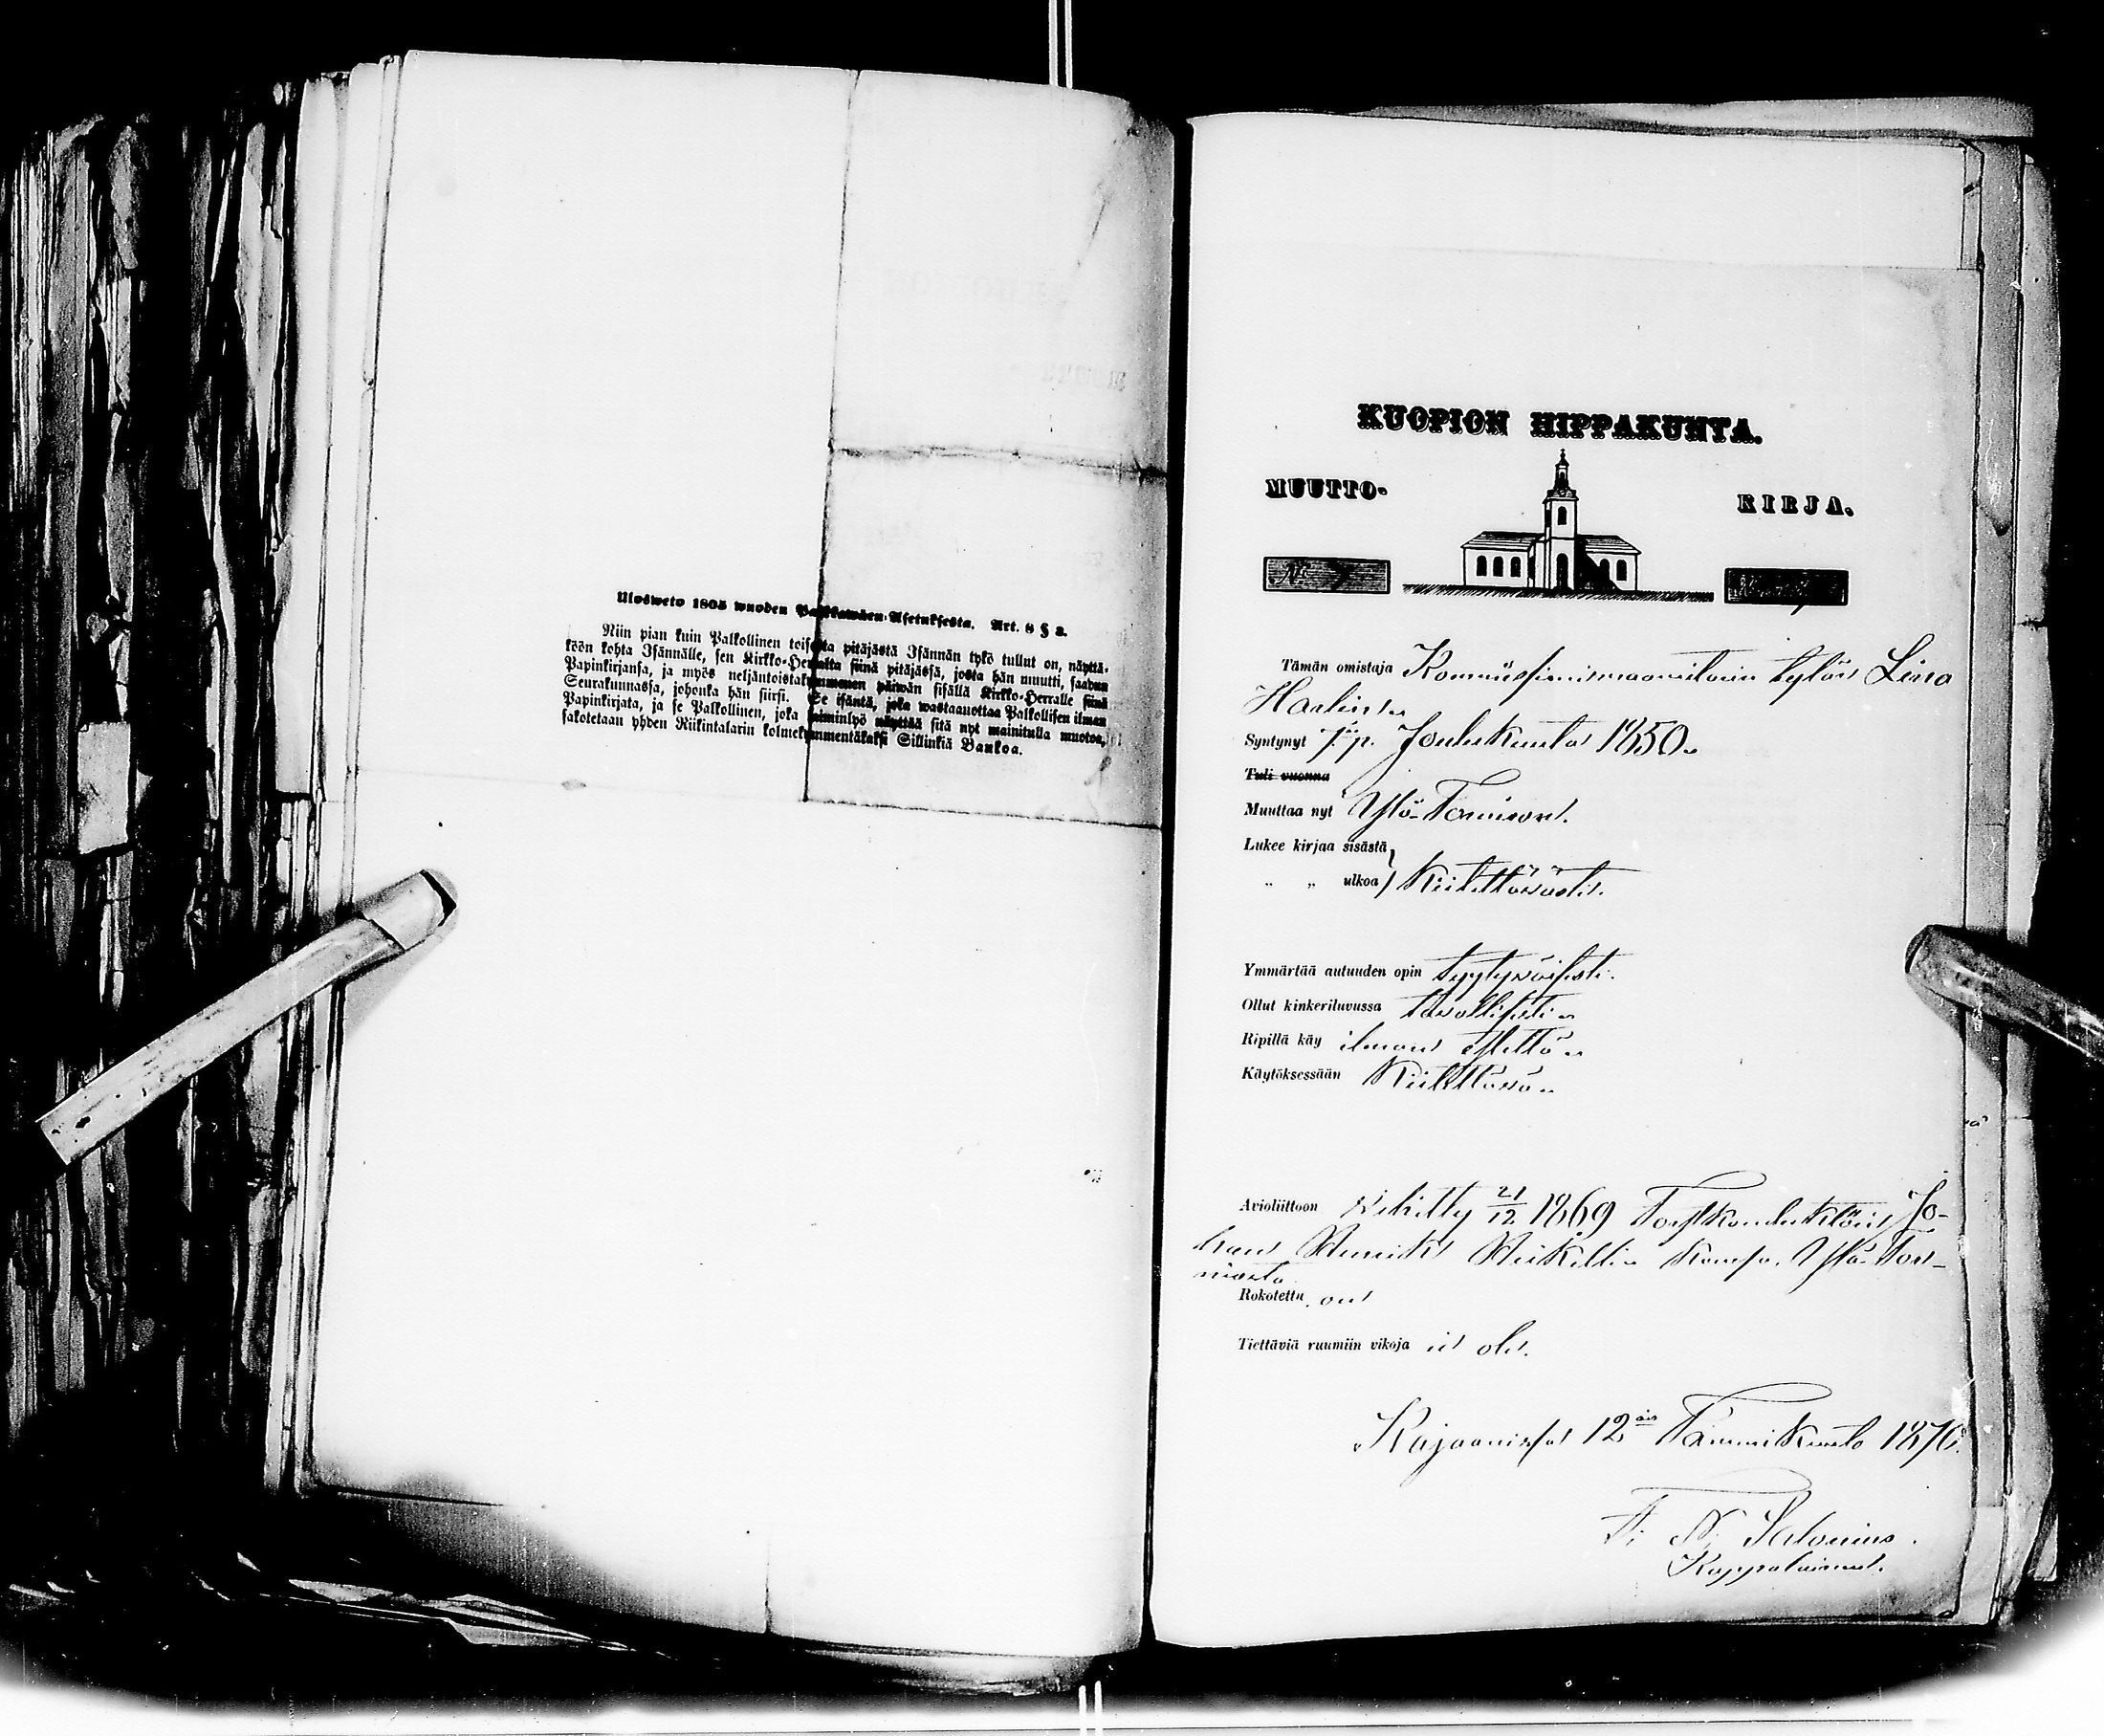 Ulosweto 1805 wuoden Palkkawäen-Asetuksesta. Art. 8 § 3.
Niin pian kuin Palkollinen toisesta pitäjästä Isännän tykö tullut on, näyttä-
köön kohta Isännälle, sen Kirkko-Herralta siinä pitäjässä, josta hän muutti, saadun
Papinkirjansa, ja myös neljäntoistakymmenen päiwän sisällä Kirkko-Herralle siinä
Seurakunnassa, johonka hän siirsi. Se isäntä, joka wastaanottaa Palkollisen ilman
Papinkirjata, ja se Palkollinen, joka laiminlyö näyttää sitä nyt mainitulla muotoa,
sakotetaan yhden Riikintalarin kolmekymmentäkaksi Sillinkiä Bankoa.
KUOPION HIPPAKUNTA.
MUUTTO-
KIRJA.
No 7
Tämän omistaja Lisa
Syntynyt Joulukuuta 1850.
Tuli vuonna
Muuttaa nyt Ylö-Tornion.
Lukee kirjaa sisästä
„ „ ulkoa Kiitettäwästi.
Ymmärtää autuuden opin tyytywäisesti.
Ollut kinkeriluvussa tawallisesti
Ripillä käy ilman estettä
Käytöksessään Kiitettäwä
Avioliittoon wihitty 21/12 1869 Jo-
han Henrik kanssa. Ylä-Tor-
niosta
Rokotettu on
Tiettäviä ruumiin vikoja ei ole.
Kajaanissa 12 Tammikuuta 1870.
N. Salonius.
Kappalainen.